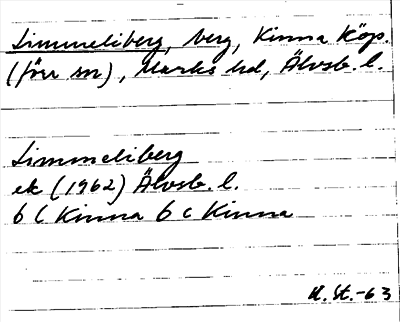 Simmeliberg, berg, Kinna köp.
(förr sn), Marks hd, Älvsb. l.
Simmeliberg
ek (1962) Älvsb. l.
6 C Kinna 6 c Kinna
H. St. -63